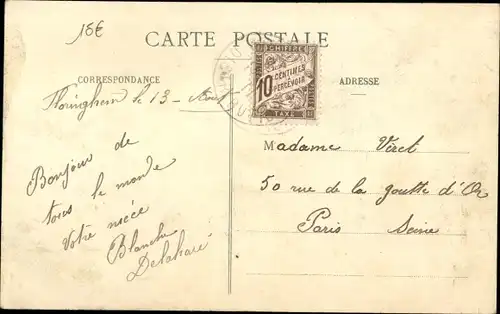 15€
CARTE POSTALE
CORRESPONDANCE
ADRESSE
CHIFFRE
10 CENTIMES
À PERCEVOIR
TAXE
Floringhem le 13 Août
Bonjour de
tous le monde
Votre nièce
Blanche
Delahaié
Madame Viret
50 rue de la goutte d'Or
Paris Seine